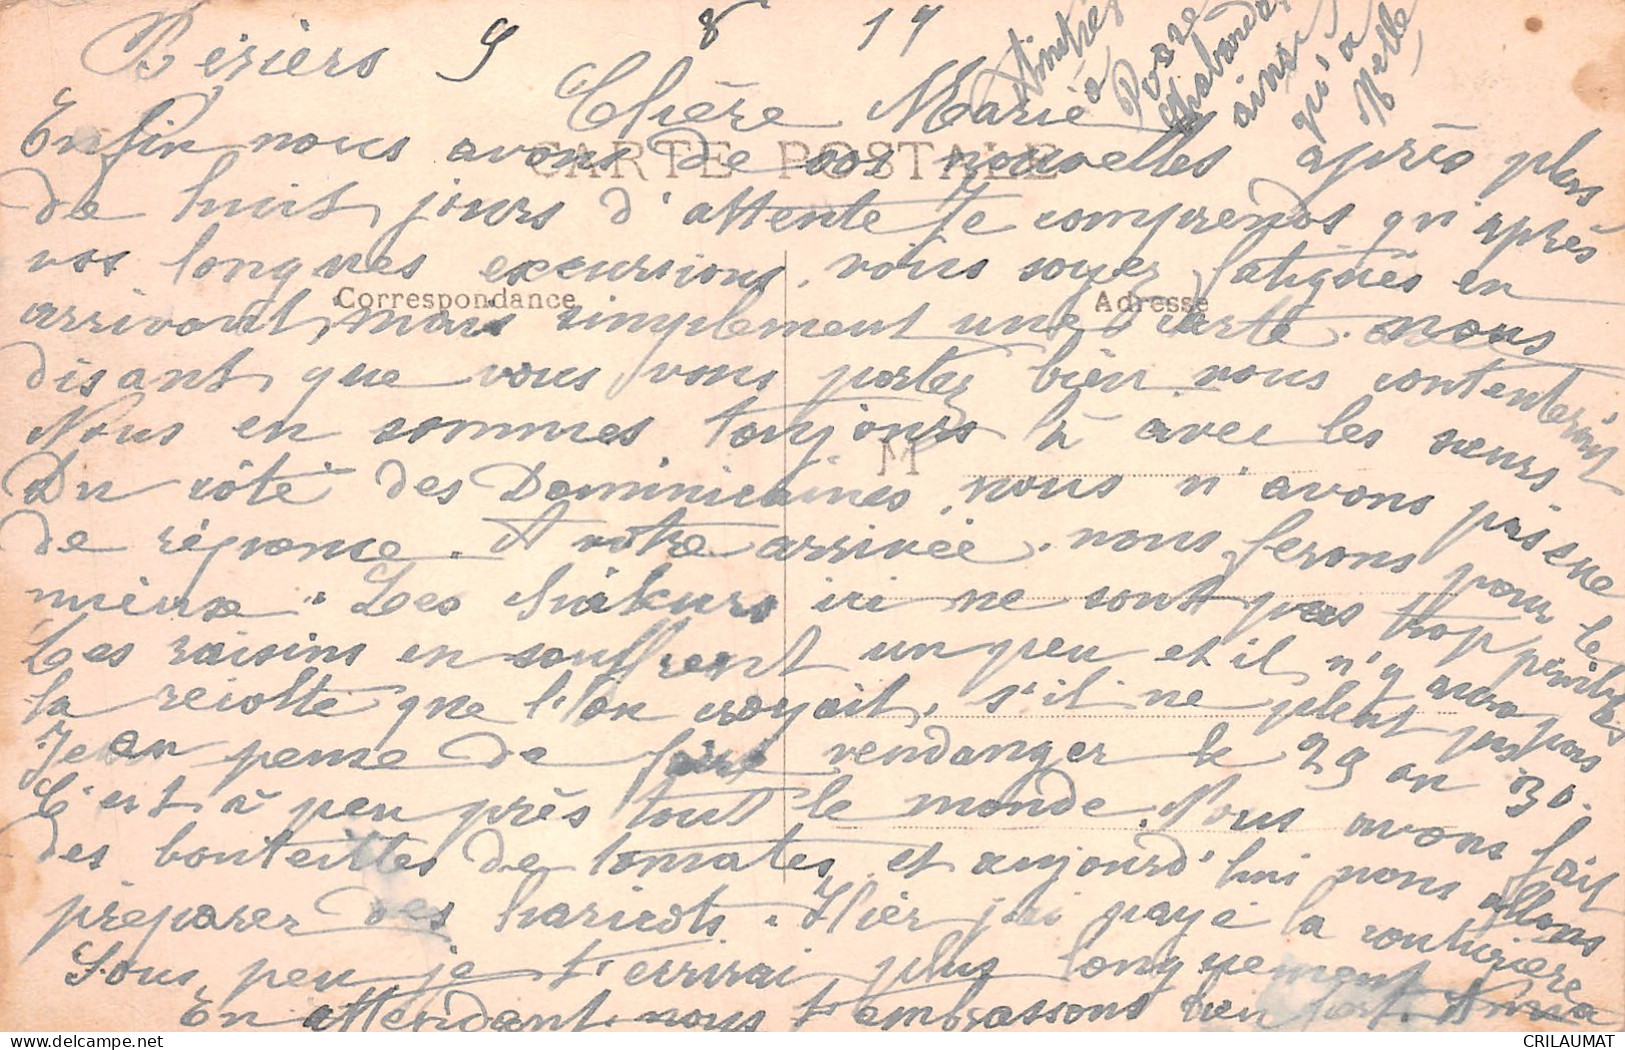 Béziers 9 8 17
Chère Marie
Enfin nous avons de vos nouvelles après plus
de huit jours d'attente Je comprends qu'après
vos longues excursions, vous soyez fatigués en
arrivant, mais simplement une carte nous
disant que vous vous portez bien nous contenterait
Nous en sommes toujours là avec les sœurs.
Du côté des Dominicaines, nous n'avons pas eu
de réponse. A votre arrivée nous ferons pour le
mieux. Les chaleurs ici ne sont pas trop pénibles
Les raisins en souffrent un peu et il n'y aura pas
la récolte que l'on croyait, s'il ne pleut pas
Jean pense de faire vendanger le 29 ou 30.
C'est à peu près tout le monde. Nous avons fait
des bouteilles de tomates et aujourd'hui nous allons
préparer des haricots. Hier j'ai payé la couturière
Sous peu je t'écrirai plus longuement
En attendant nous t'embrassons bien fort. Anna
Amitiés
à
ainsi
qu'à
Melle
CARTE POSTALE
Correspondance
Adresse
M
CRILAUMAT